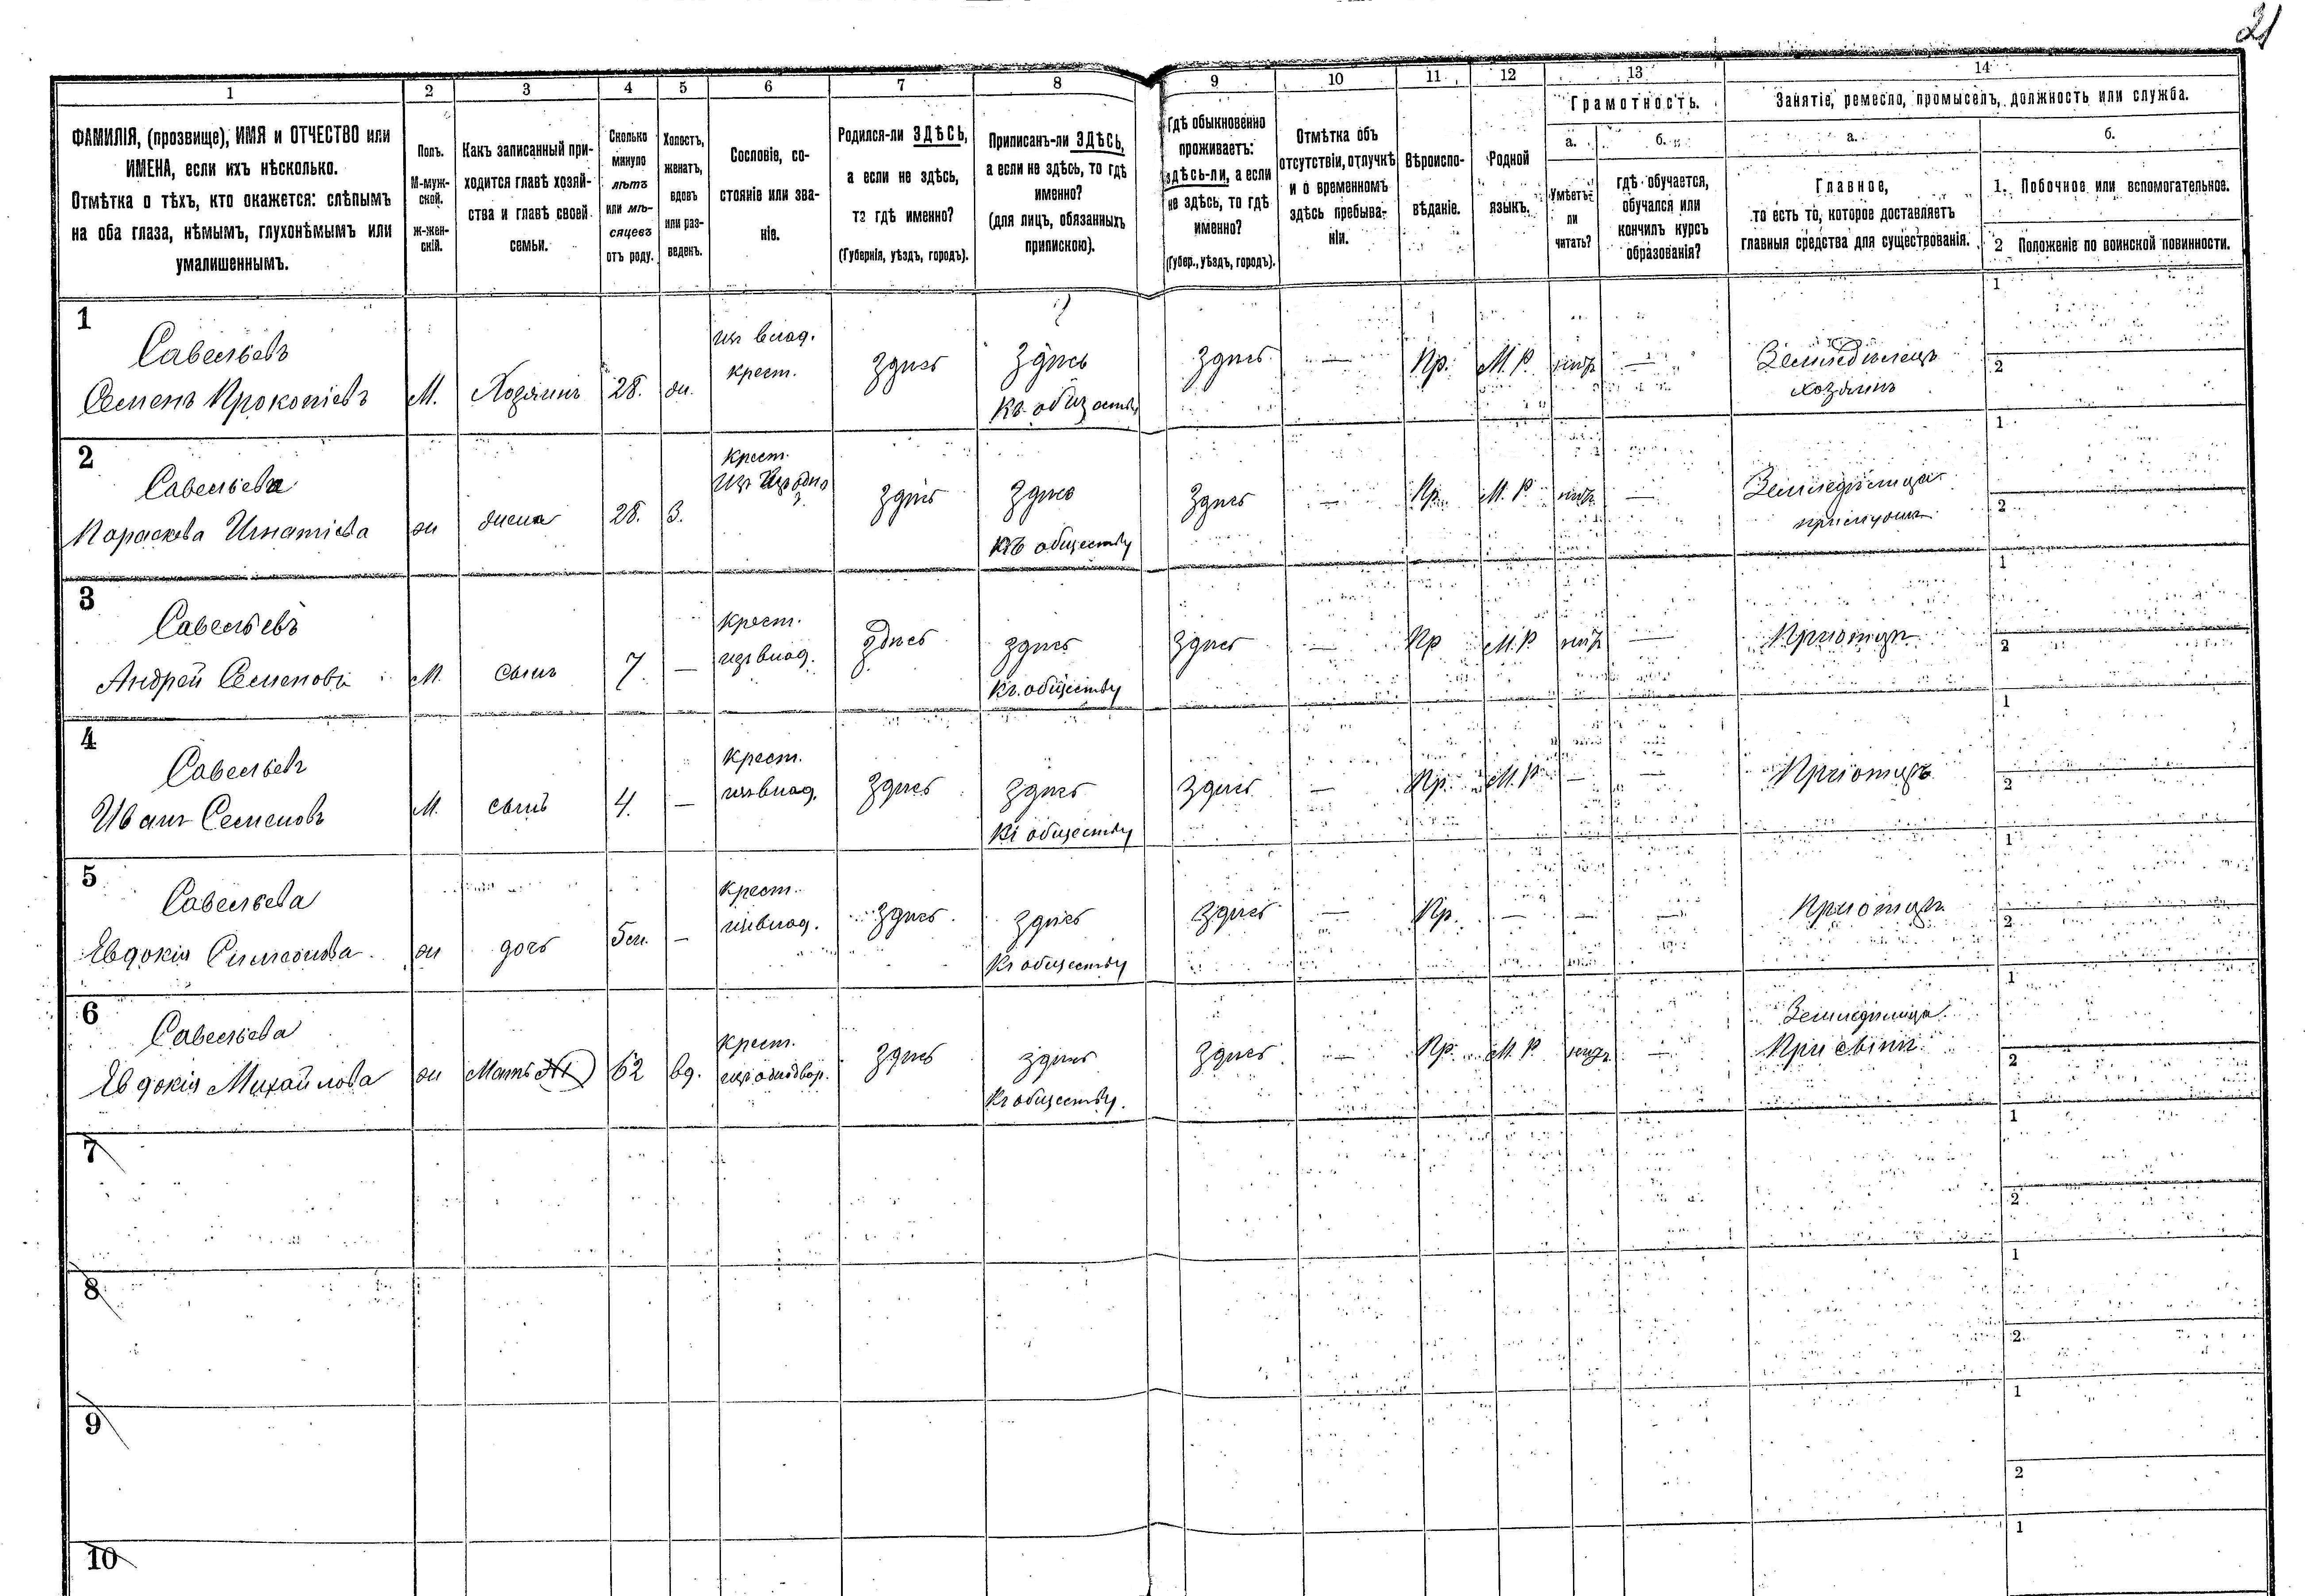 21
1 2 3 4 5 6 7 8 9 10 11 12 13 14
ФАМИЛІЯ, (прозвище), ИМЯ и ОТЧЕСТВО или
ИМЕНА, если ихъ нѣсколько.
Отмѣтка о тѣхъ, кто окажется: слѣпымъ
на оба глаза, нѣмымъ, глухонѣмымъ или
умалишеннымъ.
Полъ.
М-муж-
ской.
Ж-жен-
скій.
Какъ записанный при-
ходится главѣ хозяй-
ства и главѣ своей
семьи.
Сколько
минуло
лѣтъ
или мѣ-
сяцевъ
отъ роду.
Холостъ,
женатъ,
вдовъ
или раз-
веденъ.
Сословіе, со-
стояніе или зва-
ніе.
Родился-ли ЗДѢСЬ,
а если не здѣсь,
то гдѣ именно?
(Губернія, уѣздъ, городъ).
Приписанъ-ли ЗДѢСЬ,
а если не здѣсь, то гдѣ
именно?
(для лицъ, обязанныхъ
припискою).
Гдѣ обыкновенно
проживаетъ:
здѣсь-ли, а если
не здѣсь, то гдѣ
именно?
(Губер., уѣздъ, городъ).
Отмѣтка объ
отсутствіи, отлучкѣ
и о временномъ
здѣсь пребыва-
ніи.
Вѣроиспо-
вѣданіе.
Родной
языкъ.
Грамотность.
а. б.
Умѣетъ-
ли
читать?
гдѣ обучается,
обучался или
кончилъ курсъ
образованія?
Занятіе, ремесло, промыселъ, должность или служба.
а. б.
Главное,
то есть то, которое доставляетъ
главныя средства для существованія.
1. Побочное или вспомогательное.
2 Положеніе по воинской повинности.
1
Савельевъ
Семенъ Прокопіевъ
М. Хозяинъ 28. ж.
изъ влад.
крест.
здѣсь
здѣсь
къ обществу
здѣсь — Пр. М. Р. —
Земледѣлецъ
хозяинъ
1
2
2
Савельева
Параскева Игнатіева
ж жена 28. З.
крест.
здѣсь
здѣсь
къ обществу
здѣсь — Пр. М. Р. —
Земледѣлица
1
2
3
Савельевъ
Андрей Семеновъ
М. сынъ 7 —
крест.
изъ влад.
здѣсь
здѣсь
къ обществу
здѣсь — Пр М. Р —
При отцѣ
1
2
4
Савельевъ
Иванъ Семеновъ
М. сынъ 4. —
крест.
изъ влад.
здѣсь
здѣсь
къ обществу
здѣсь — Пр. М. Р — —
При отцѣ
1
2
5
Савельева
Евдокія Симеонова
ж дочь 5 м. —
крест.
изъ влад.
здѣсь
здѣсь
къ обществу
здѣсь — Пр. — — —
При отцѣ
1
2
6
Савельева
Евдокія Михайлова
ж Мать 62 вд.
крест.
изъ однодвор.
здѣсь
здѣсь
къ обществу.
здѣсь — Пр. М. Р —
Земледѣлица
При сынѣ
1
2
7
1
2
8
1
2
9
1
2
10
1